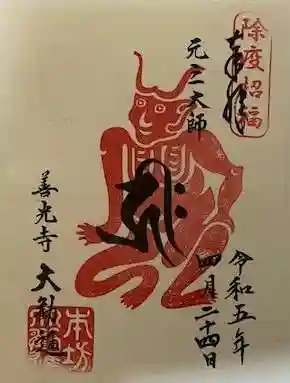 除疫招福
奉拝
元三大師
令和五年
四月二十四日
善光寺
大勧進
本坊